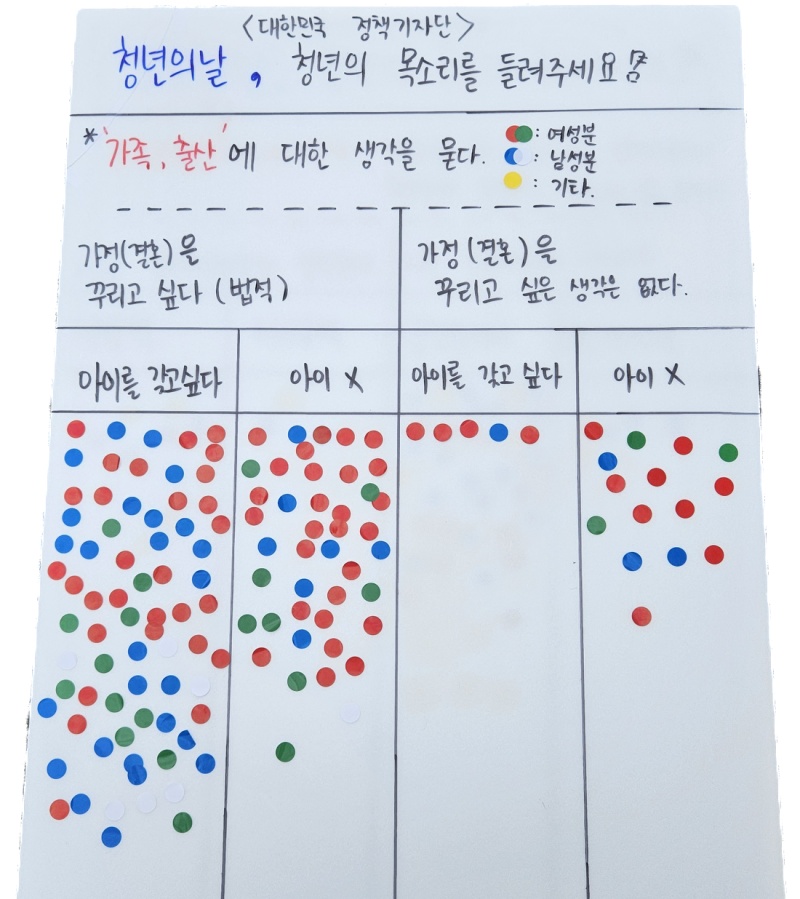 <대한민국 정책기자단>
청년의날, 청년의 목소리를 들려주세요
* '가족, 출산'에 대한 생각을 묻다.
: 여성분
: 남성분
: 기타.
가정(결혼)을
꾸리고 싶다 (법적)
가정(결혼)을
꾸리고 싶은 생각은 없다.
아이를 갖고싶다
아이 X
아이를 갖고 싶다
아이 X